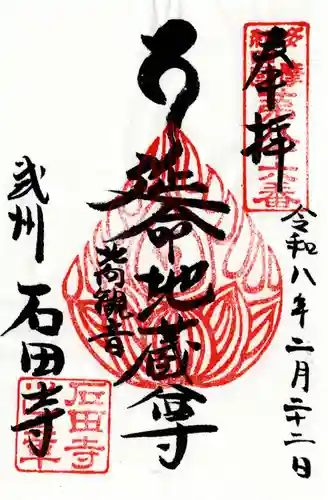 奉拝
令和八年二月二十二日
延命地蔵尊
北向観音
武州
石田寺
石田寺